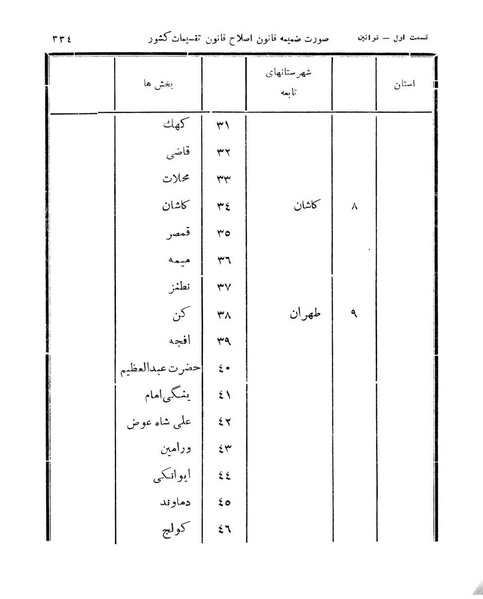 قسمت اول — قوانین صورت ضمیمه قانون اصلاح قانون تقسیمات کشور ٣٣٤
استان شهرستانهای تابعه بخش ها
٣١ کهك
٣٢ قاضی
٣٣ محلات
٨ کاشان ٣٤ کاشان
٣٥ قمصر
٣٦ میمه
٣٧ نطنز
٩ طهران ٣٨ کن
٣٩ افجه
٤٠ حضرت عبدالعظیم
٤١ ینگی امام
٤٢ علی شاه عوض
٤٣ ورامین
٤٤ ایوانکی
٤٥ دماوند
٤٦ کولج